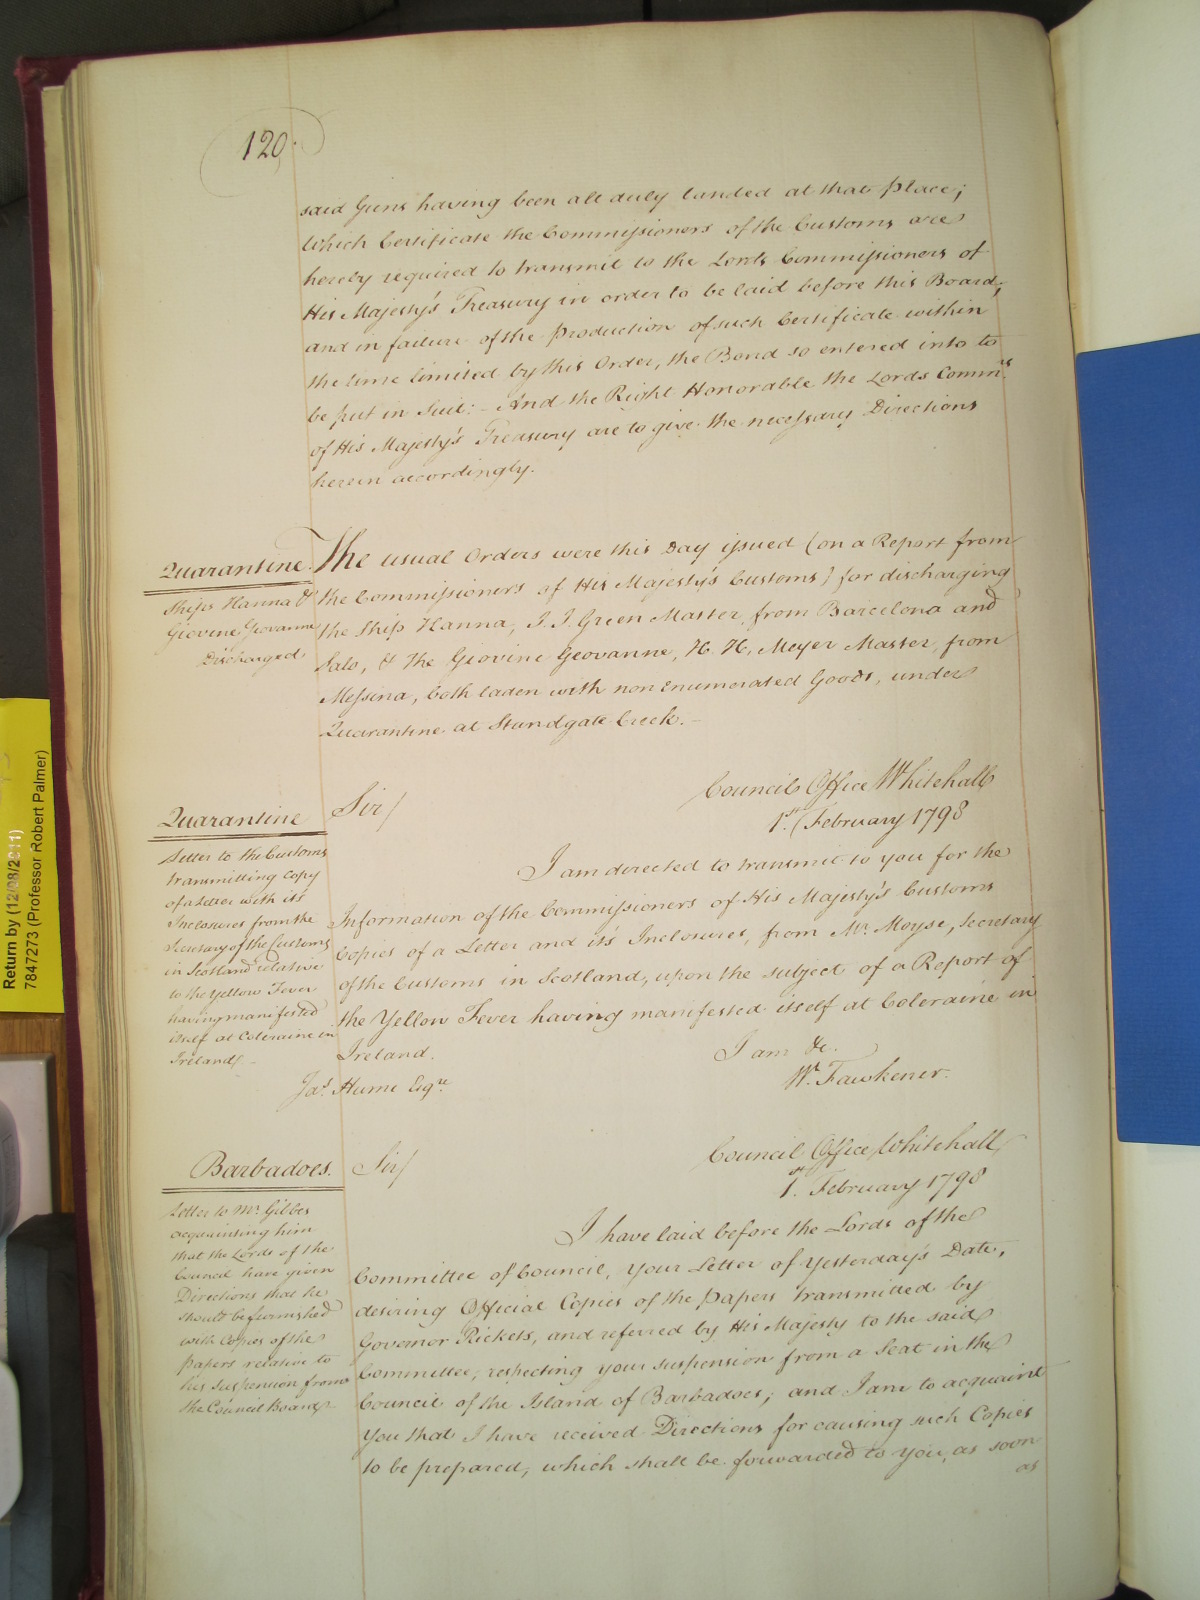 120.
said Guns having been all duly landed at that Place;
Which Certificate the Commissioners of the Customs are
hereby required to transmit to the Lords Commissioners of
His Majesty's Treasury in order to be laid before this Board;
and in failure of the Production of such Certificate within
the time limited by this Order, the Bond so entered into to
be put in Suit: - And the Right Honorable the Lords Commrs.
of His Majesty's Treasury are to give the necessary Directions
herein accordingly.
Quarantine.
Ships Hanna &
Giovine Geovanne
Discharged
The usual Orders were this Day issued (on a Report from
the Commissioners of His Majesty's Customs) for discharging
the Ship Hanna, J. J. Green Master, from Barcelona and
Salo, & The Geovine Geovanne, H. H. Meyer Master, from
Messina, both laden with non Enumerated Goods, under
Quarantine at Standgate Creek. -
Quarantine
Letter to the Customs
transmitting Copy
of a Letter with its
Inclosures from the
Secretary of the Customs
in Scotland relative
to the Yellow Fever
having manifested
itself at Coleraine in
Ireland -
Sir/
Council Office Whitehall
1st. February 1798
I am directed to transmit to you for the
Information of the Commissioners of His Majesty's Customs
Copies of a Letter and it's Inclosures, from Mr. Moyse, Secretary
of the Customs in Scotland, upon the subject of a Report of
the Yellow Fever having manifested itself at Coleraine in
Ireland.
I am &c.
Wm. Fawkener.
Jas. Hume Esqre.
Barbadoes.
Letter to Mr. Gibbes
acquainting him
that the Lords of the
Council have given
Directions that he
should be furnished
with Copies of the
Papers relative to
his Suspension from
the Council Board -
Sir/
Council Office Whitehall
1st. February 1798
I have laid before the Lords of the
Committee of Council, Your Letter of Yesterday's Date,
desiring Official Copies of the Papers transmitted by
Governor Rickets, and referred by His Majesty to the said
Committee, respecting your suspension from a Seat in the
Council of the Island of Barbadoes; and I am to acquaint
You that I have received Directions for causing such Copies
to be prepared, which shall be forwarded to You, as soon
as
Return by (12/08/2011)
7847273 (Professor Robert Palmer)